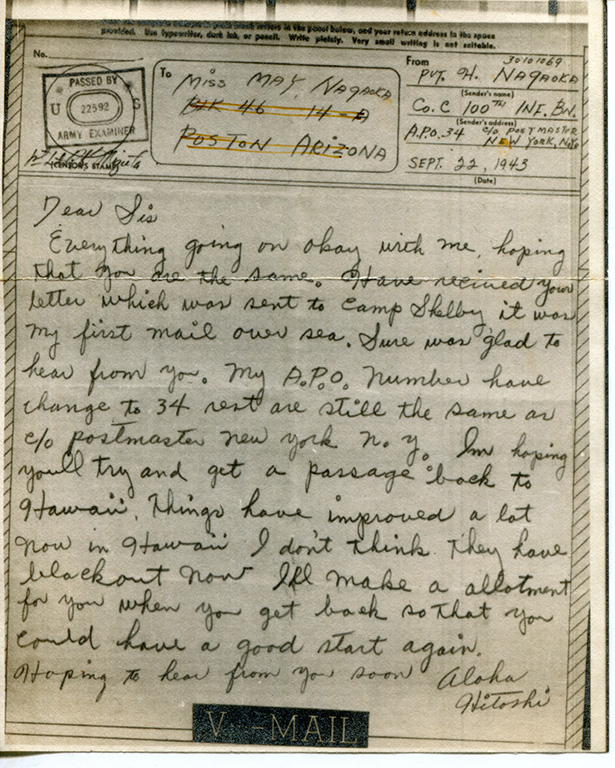 provided. Use typewriter, dark ink, or pencil. Write plainly. Very small writing is not suitable.
No.
PASSED BY
U 22592 S
ARMY EXAMINER
(CENSOR'S STAMP)
To
MISS MAY NAGAOKA
BLK 46 14-A
POSTON ARIZONA
From
30101069
PVT. H. NAGAOKA
(Sender's name)
CO. C 100TH INF. BN.
(Sender's address)
A.P.O. 34 C/O POSTMASTER
NEW YORK, N.Y.
SEPT. 22, 1943
(Date)
Dear Sis
Everything going on okay with me, hoping
that you are the same. Have recived your
letter which was sent to Camp Shelby it was
my first mail over sea. Sure was glad to
hear from you. My A.P.O. number have
change to 34 rest are still the same as
c/o postmaster new york n.y. Im hoping
you'll try and get a passage back to
Hawaii. Things have improved a lot
now in Hawaii I don't think they have
blackout now I'll make a allotment
for you when you get back so that you
could have a good start again.
Hoping to hear from you soon
Aloha
Hitoshi
V - MAIL